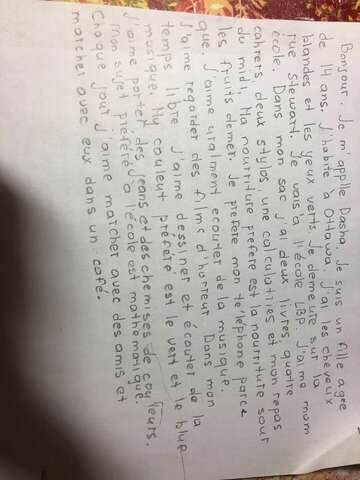 Bonjour. Je m'applle Dasha. Je suis un fille agee
de 14 ans. J'habite à Ottowa. J'ai les cheveux
blandes et les yeux verts. Je demeure sur la
rue Stewart. Je vais à l'école LBP. J'aime mum
école. Dans mon sac j'ai deux livres, quatre
cahiers, deux stylos, une calculatries et mon repas
du midi. Ma nourriture préfère est la nourriture sour
les fruits demer. Je préfère mon téléphone parce
que. J'aime vralment ecouter de la musique
J'aime regarder des films d'horreur. Dans mon
temps libre j'aime dessiner et écouter de la
musique. My couleur préféré est le vert et le blue
j'aime porter des jeans et des chemises de couleurs.
Mon sujet préféré à l'école est mathemanique.
Chaque jour j'aime marcher avec des amis et
marcher avec eux dans un café.